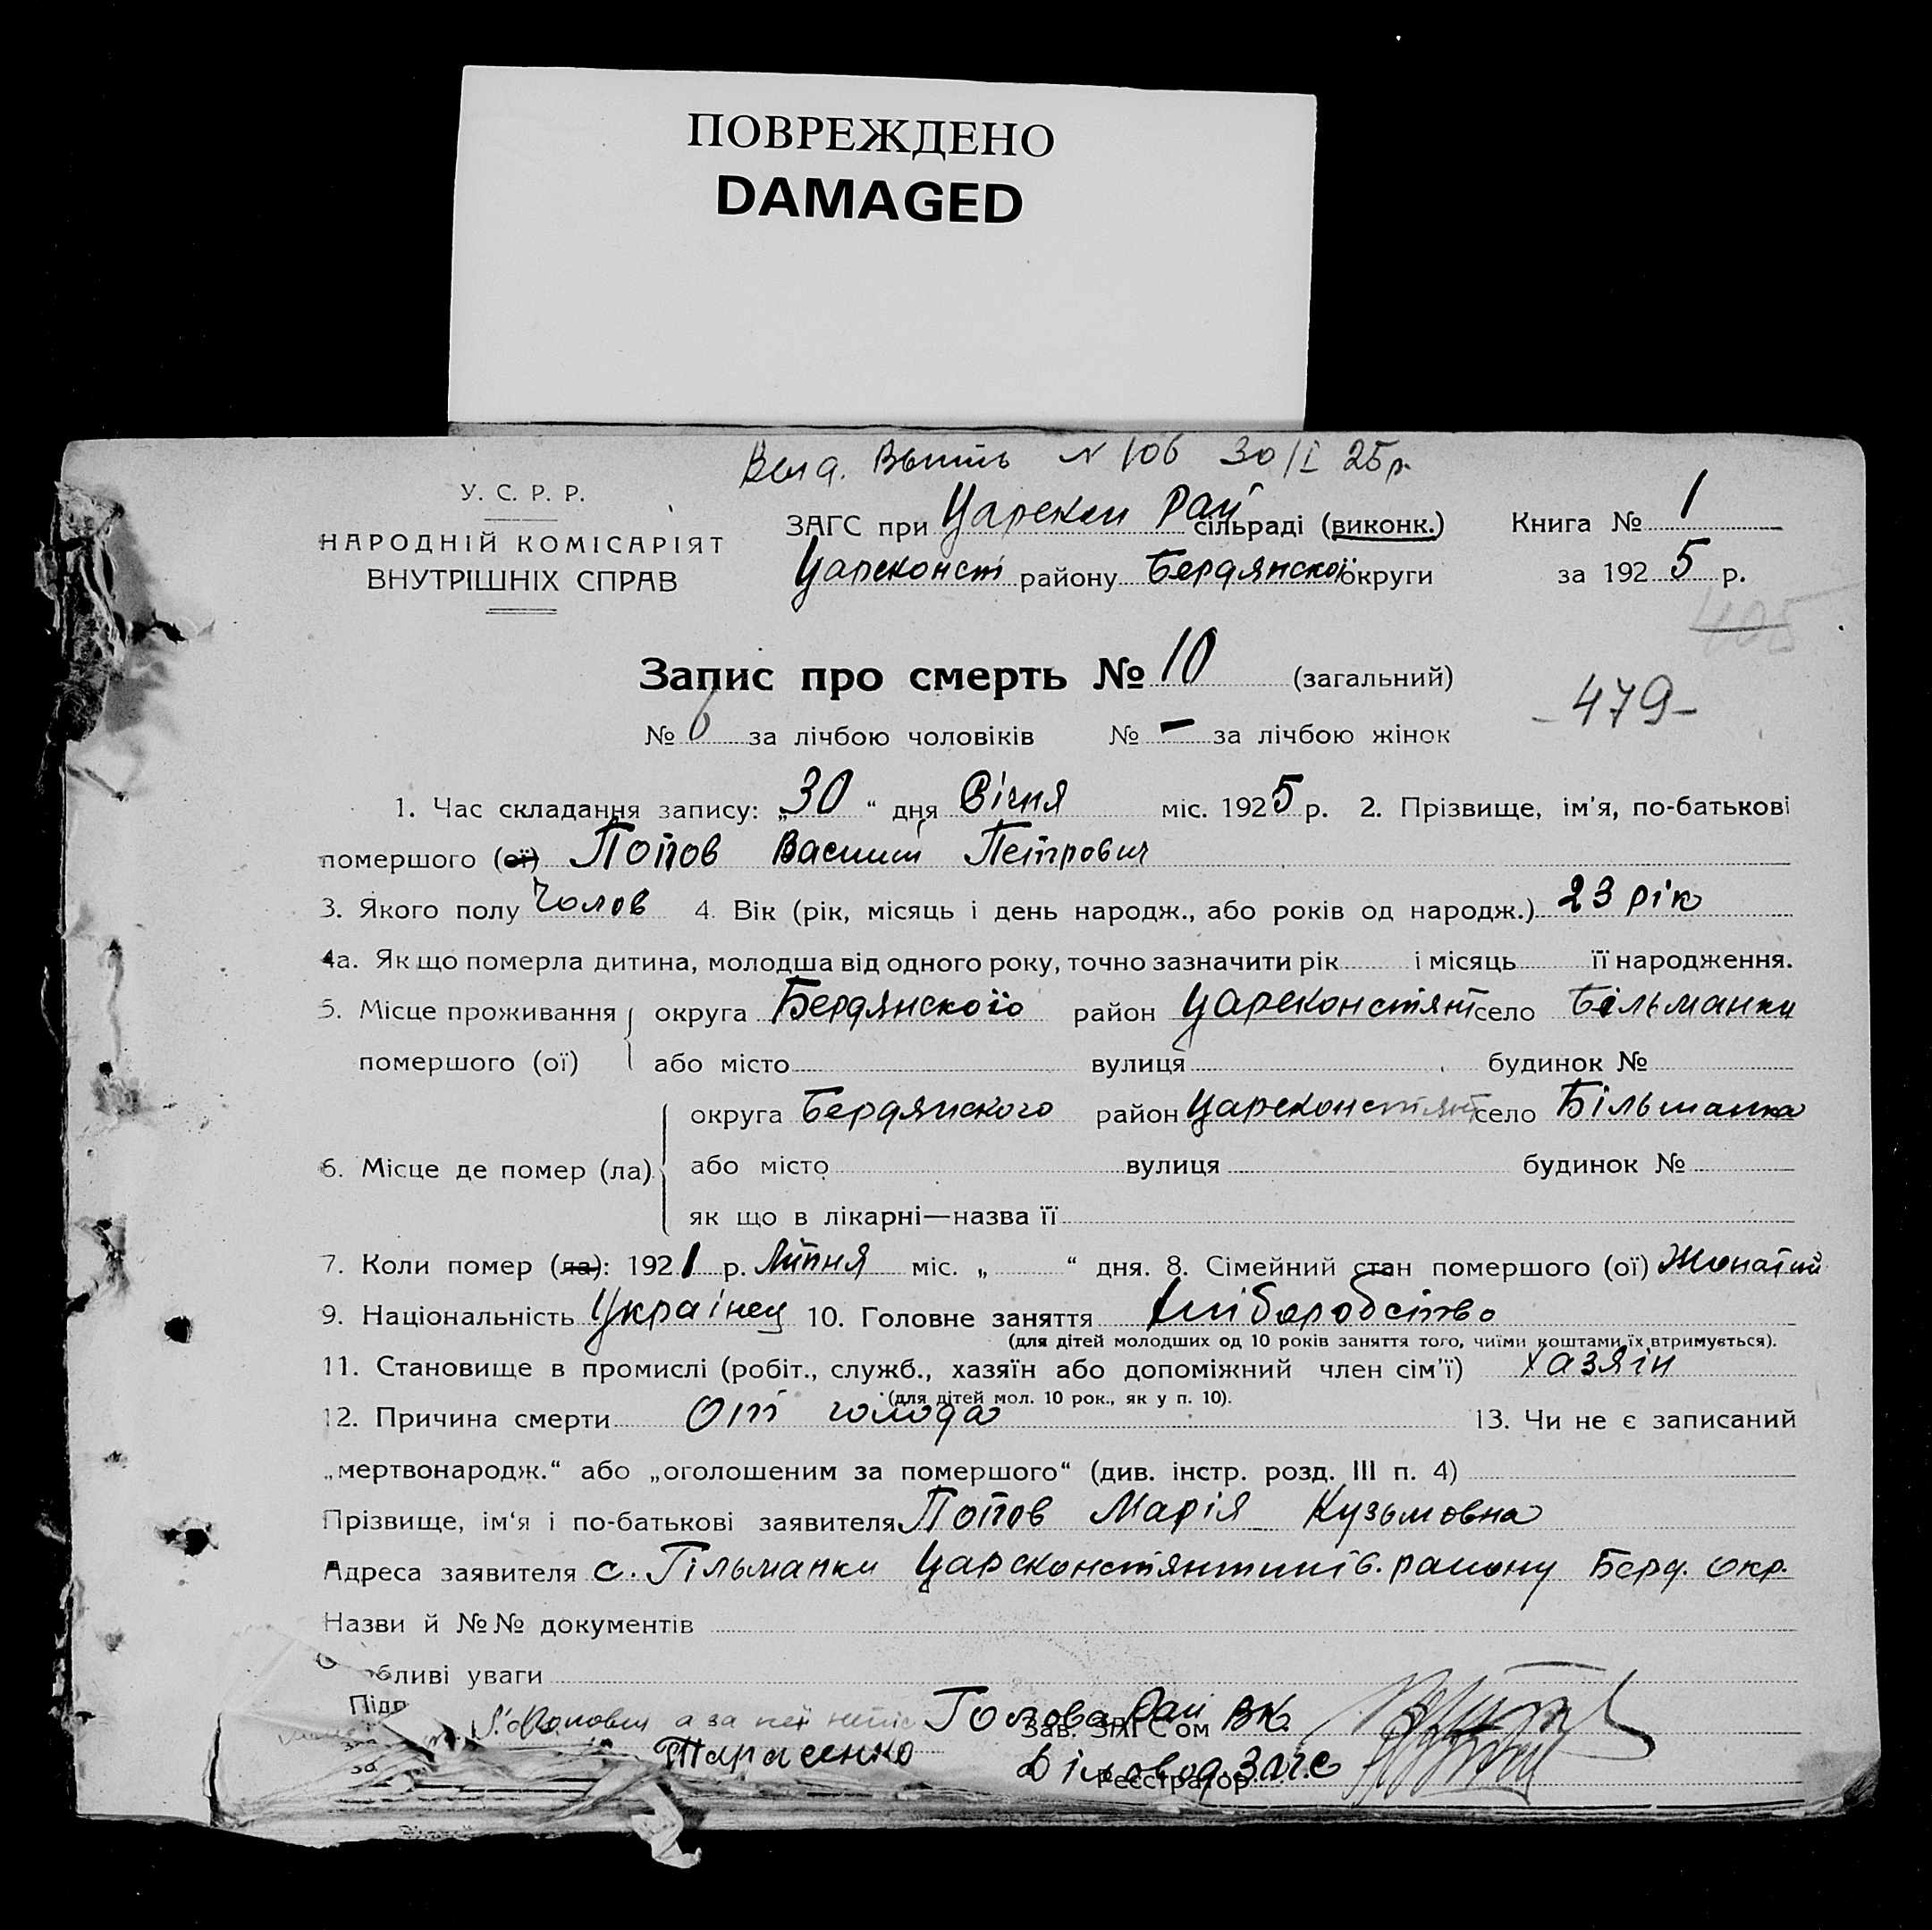 ПОВРЕЖДЕНО
DAMAGED
N 106 30/I 25р.
У. С. Р. Р.
НАРОДНІЙ КОМІСАРІЯТ
ВНУТРІШНІХ СПРАВ
ЗАГС при Царекон Рай сільраді (виконк.)
Цареконст району Бердянської округи
Книга № 1
за 192 5 р.
405
Запис про смерть № 10 (загальний)
- 479 -
№ 6 за лічбою чоловіків № - за лічбою жінок
1. Час складання запису: „30“ дня Січня міс. 1925 р. 2. Прізвище, ім'я, по-батькові
помершого (ої) Попов Василий Петрович
3. Якого полу Чолов 4. Вік (рік, місяць і день народж., або років од народж.) 23 рік
4а. Як що померла дитина, молодша від одного року, точно зазначити рік і місяць її народження.
5. Місце проживання помершого (ої) округа Бердянского район Цареконстянт село Більманки
або місто вулиця будинок №
6. Місце де помер (ла) округа Бердянского район Цареконстянт село Більманка
або місто вулиця будинок №
як що в лікарні—назва її
7. Коли помер (ла): 1921 р. Липня міс. „ “ дня. 8. Сімейний стан помершого (ої) Жонатий
9. Національність Українец 10. Головне заняття Хліборобство
(для дітей молодших од 10 років заняття того, чиїми коштами їх втримується).
11. Становище в промислі (робіт., служб., хазяїн або допоміжний член сім'ї) хазяїн
(для дітей мол. 10 рок., як у п. 10).
12. Причина смерти От голода 13. Чи не є записаний
„мертвонародж.“ або „оголошеним за помершого“ (див. інстр. розд. III п. 4)
Прізвище, ім'я і по-батькові заявителя Попов Марія Кузьмовна
Адреса заявителя с. Гільманки Царсконстянтинів. району Берд. окр.
Назви й №№ документів
бливі уваги
Підп а за неї Голова Рай ВК.
Зав. ЗАГС'ом
Тарасенко Діловод. Загс
Реєстратор